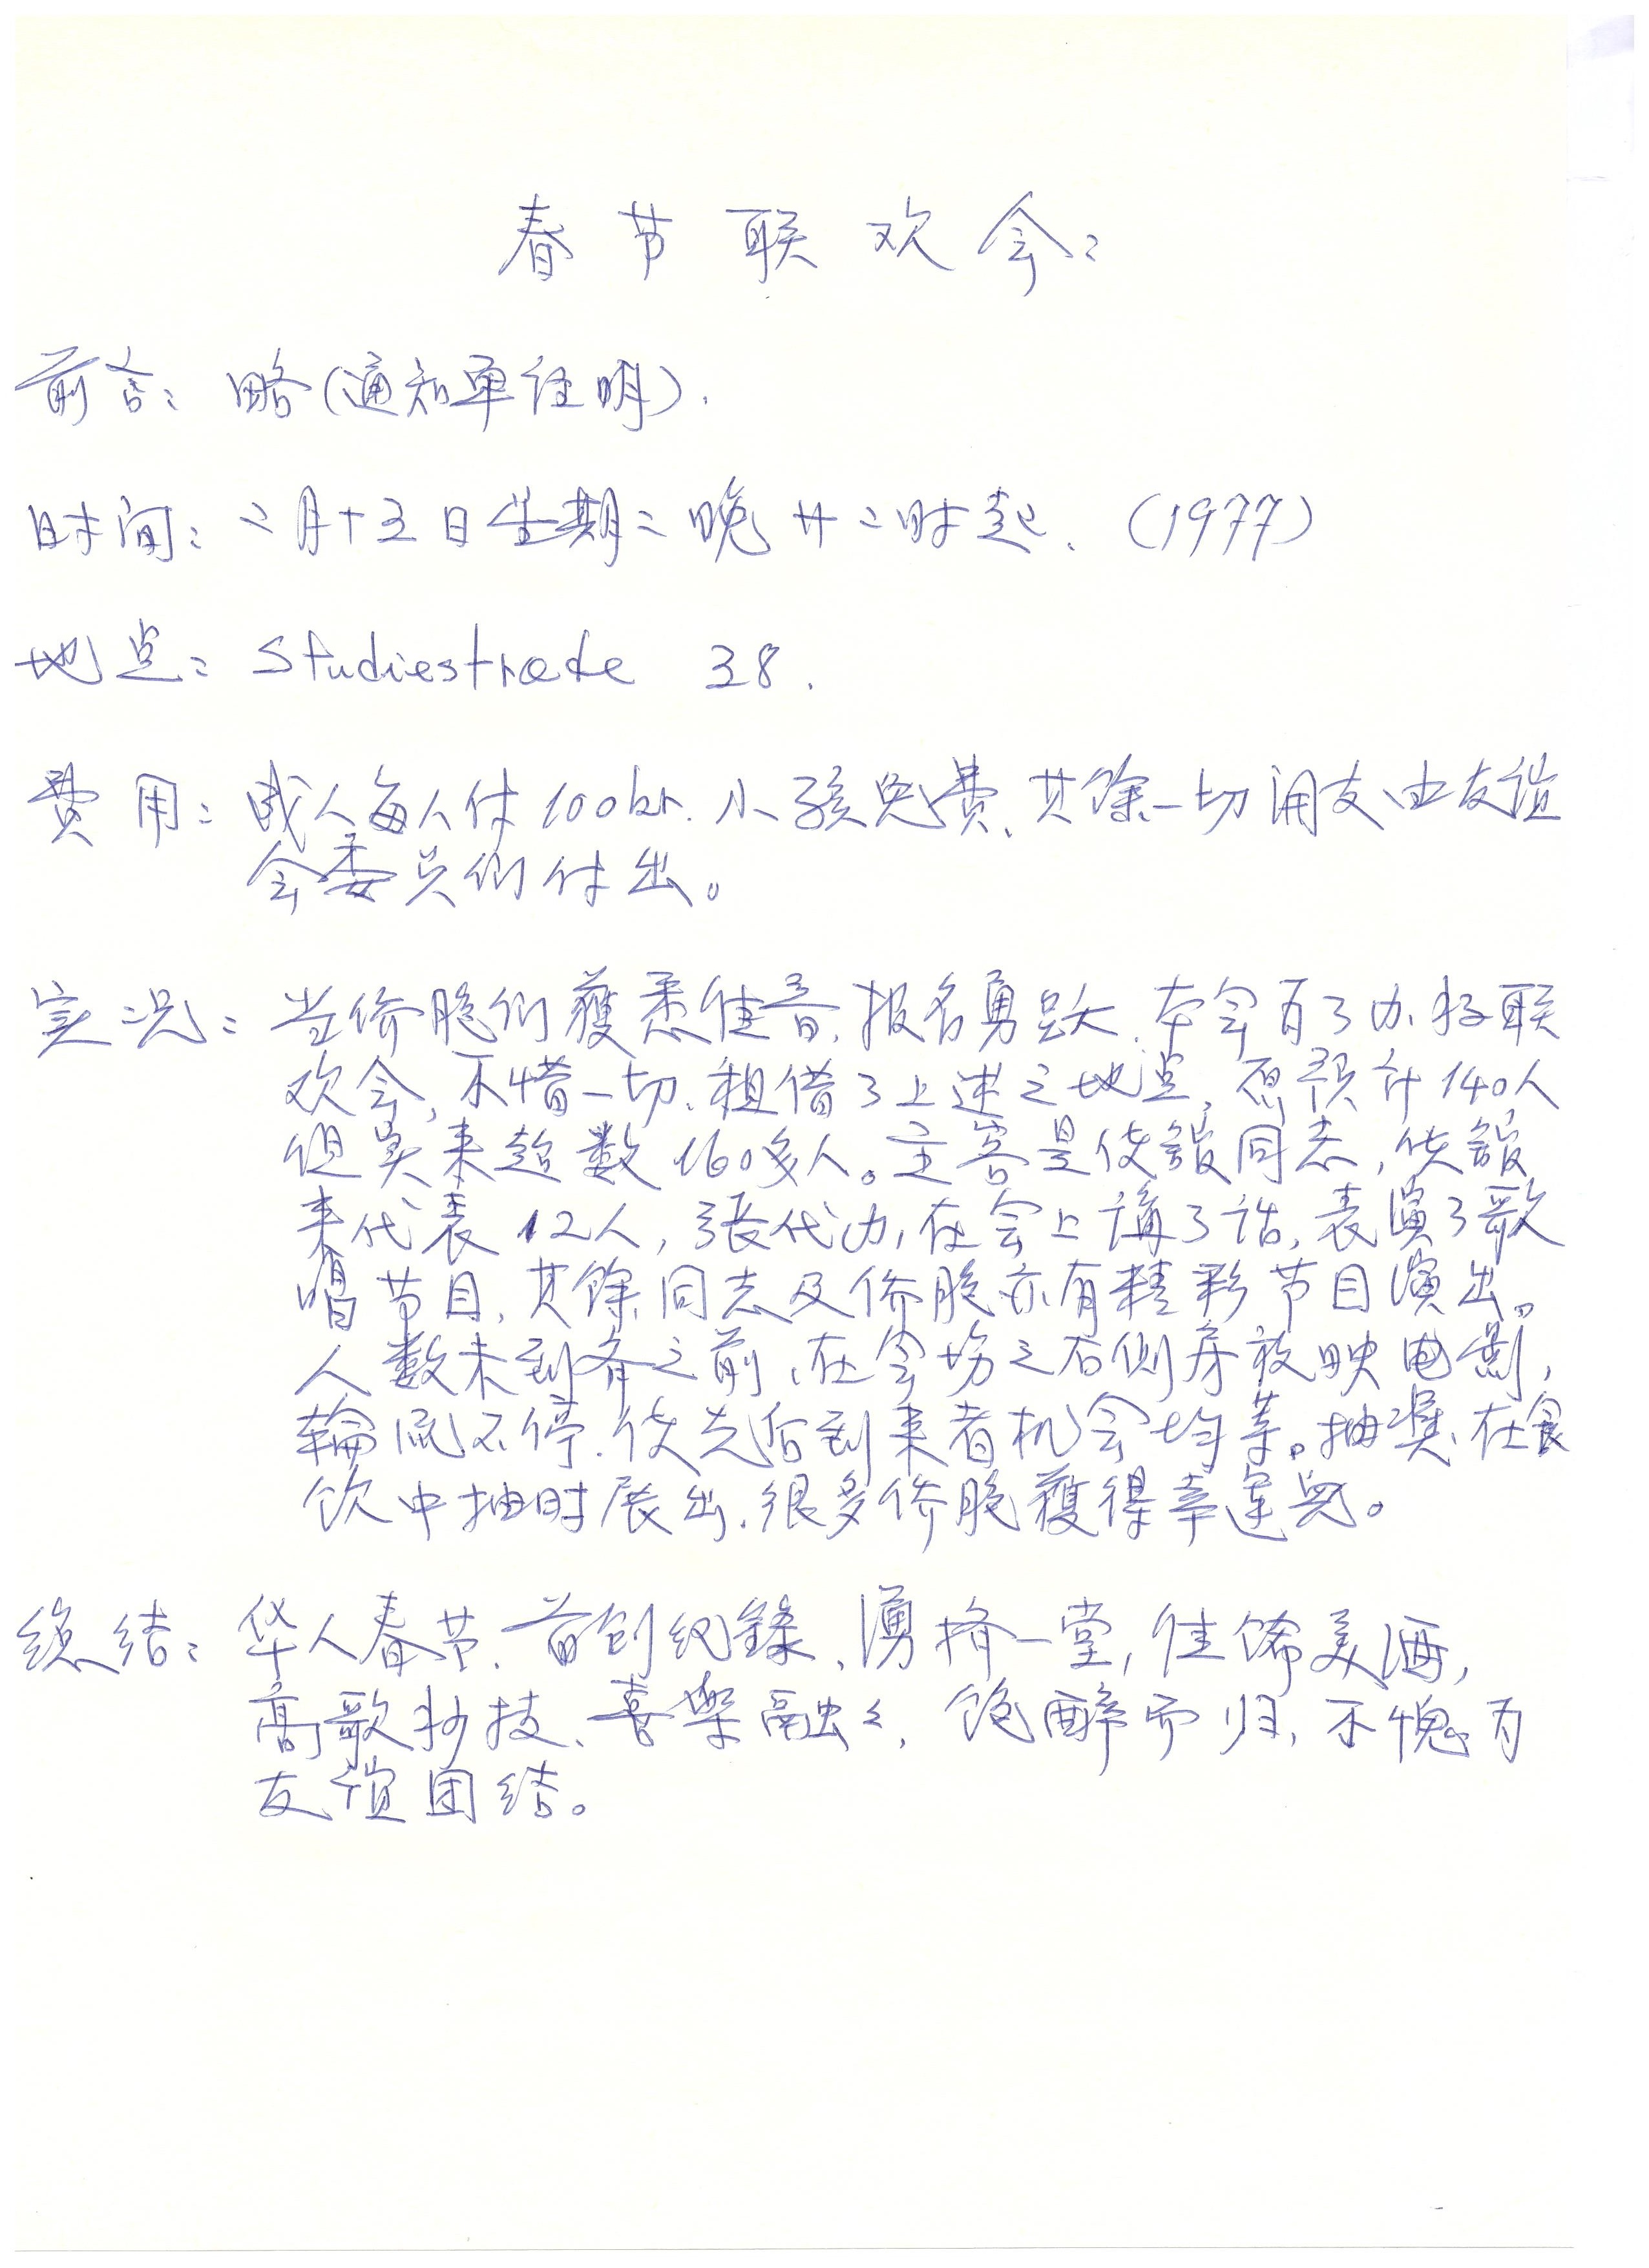 春节联欢会:
前言: 略(通知单证明).
时间: 二月十五日星期二晚廿二时起. (1977)
地点: Studiestræde 38.
费用: 成人每人付100kr. 小孩免费、其馀一切开支由友谊
会委员们付出。
实况: 当侨胞们獲悉佳音, 报名勇跃. 本会为了办好联
欢会, 不惜一切. 租借了上述之地点, 原预计140人
但实来超数160多人。主客是使館同志, 使館
来代表12人, 張代办, 在会上講了话, 表演了歌
唱节目, 其馀同志及侨胞亦有精彩节目演出。
人数未到齐之前, 在会场之右侧房放映电影,
輪流不停. 使先后到来者机会均等。抽獎, 在食
饮中抽时展出. 很多侨胞獲得幸运。
总结: 华人春节. 首创纪錄、湧挤一堂, 佳馐美酒,
高歌妙技、喜樂融々, 饱醉而归, 不愧为
友谊团结。